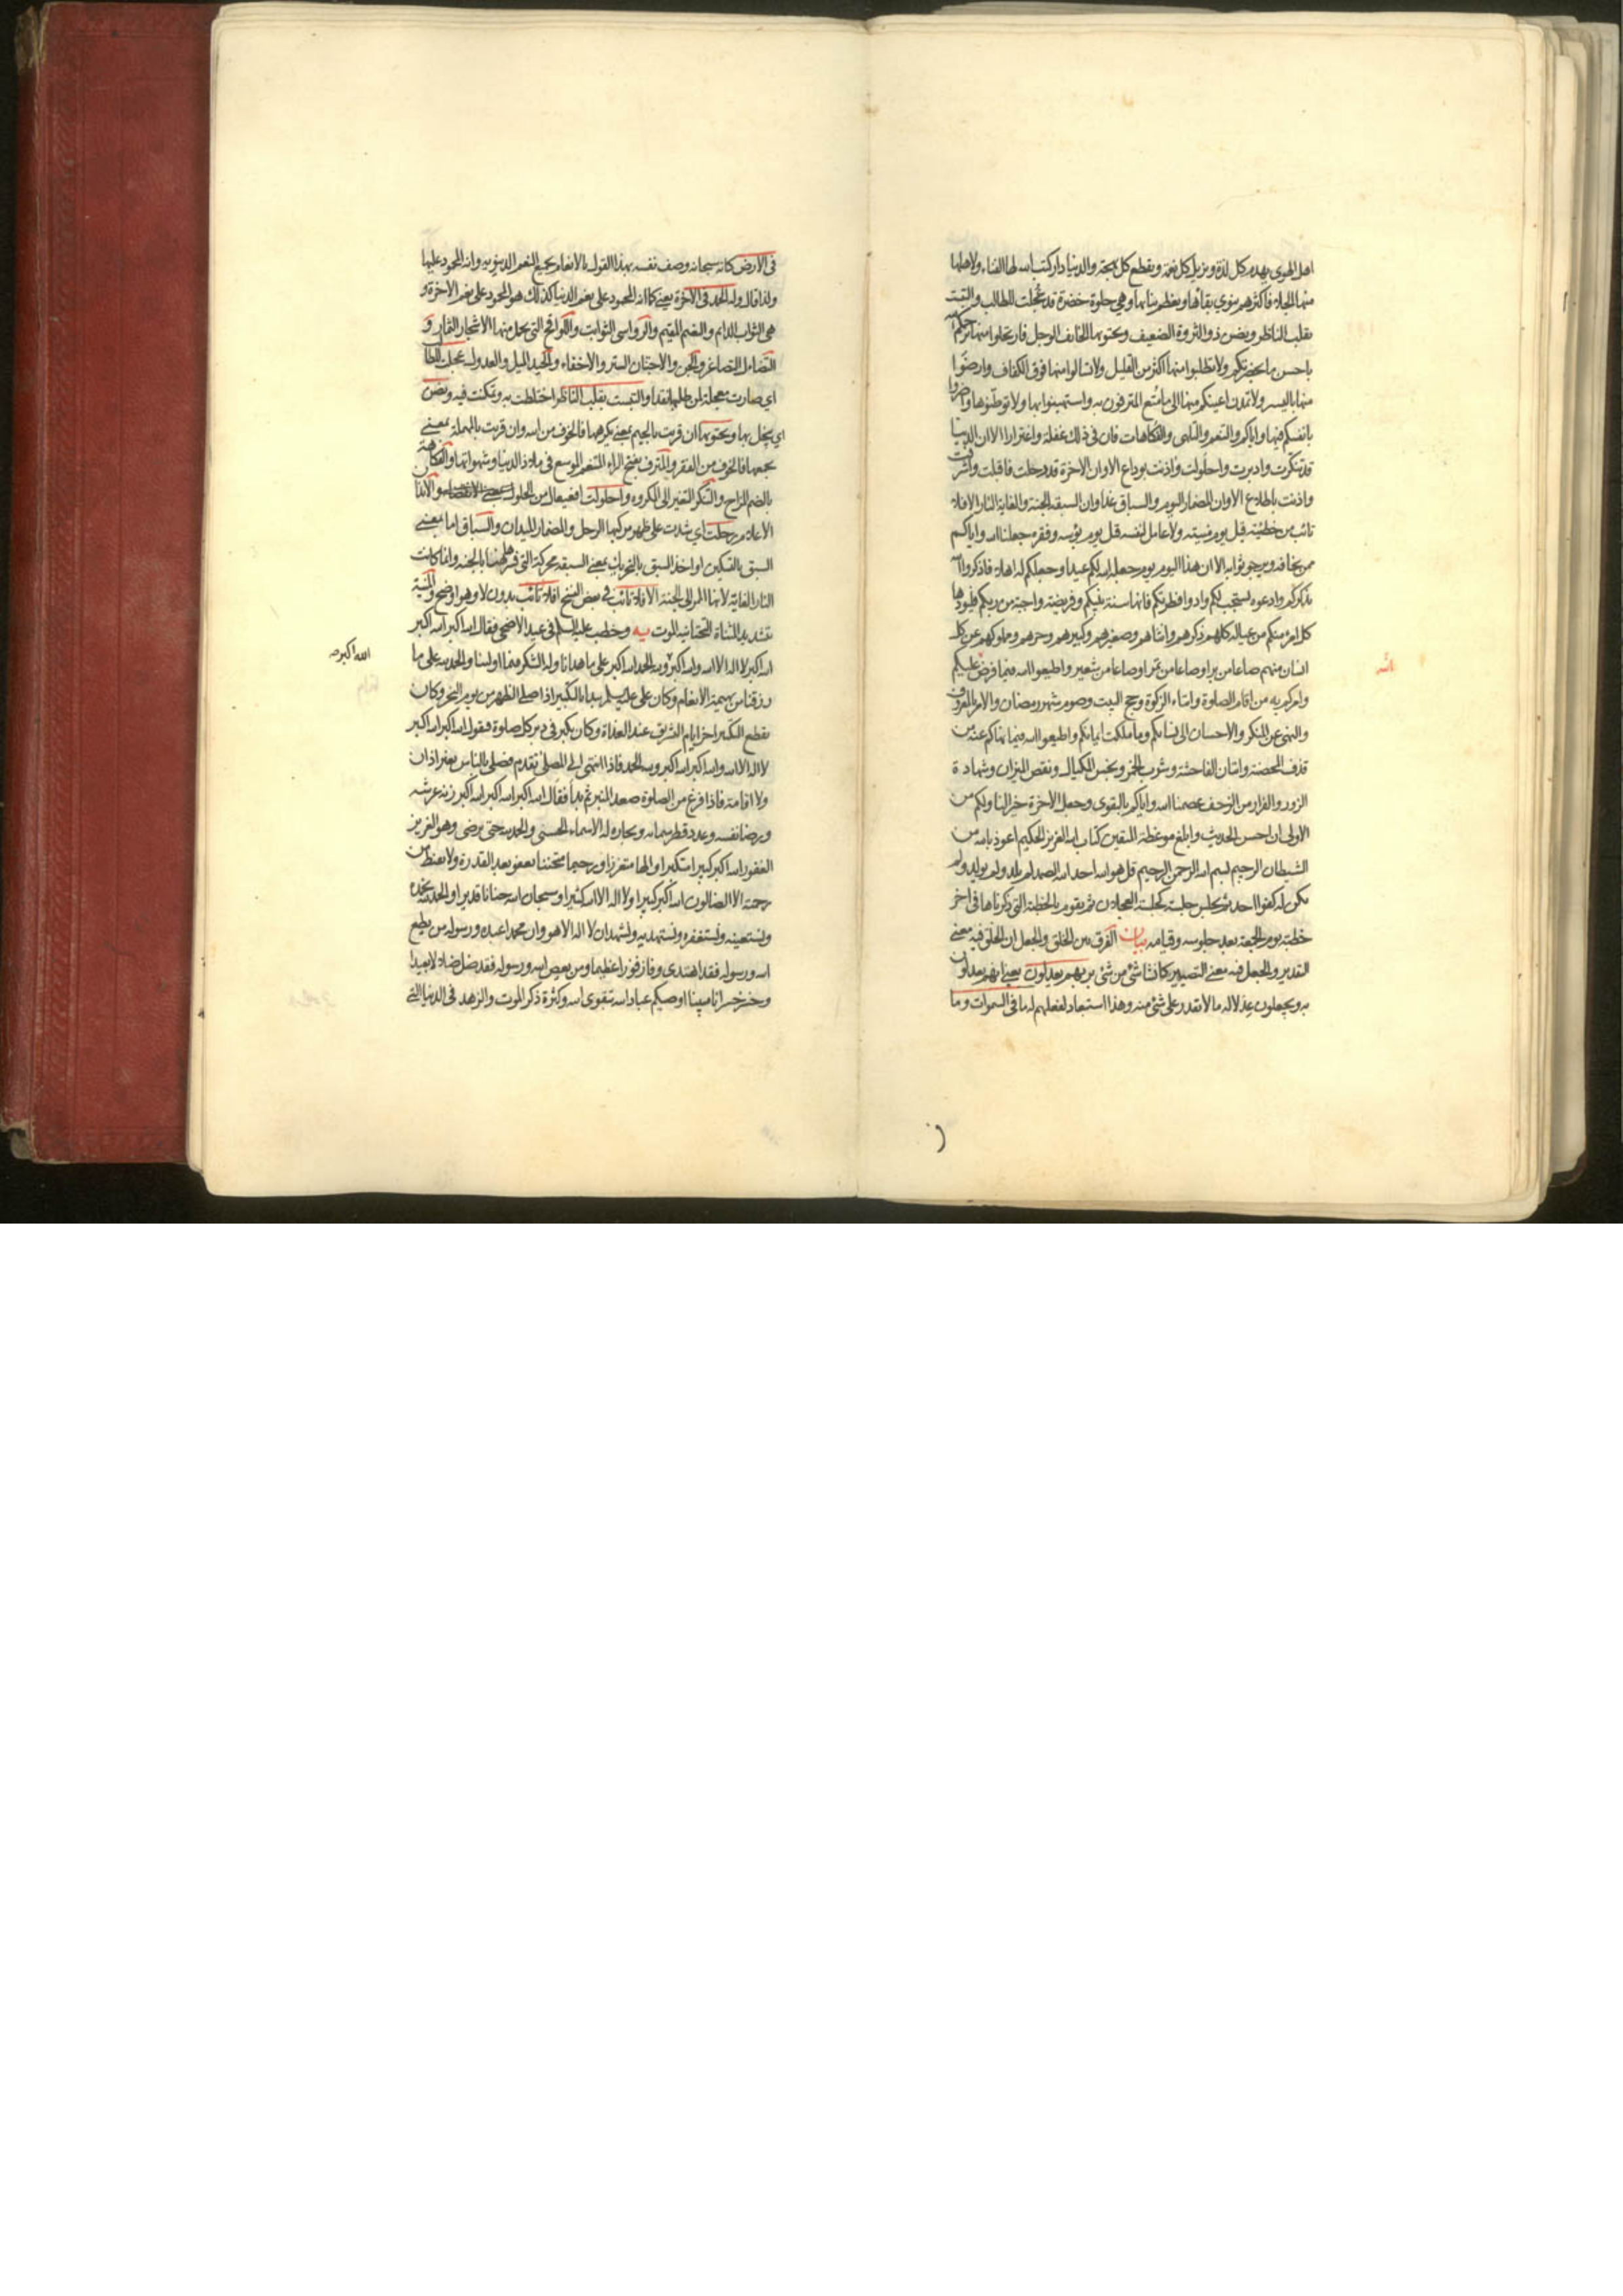 اهل الهوى يهدم كل لذة ويزيل كل نعمة ويقطع كل بهجة والدنيا دار كتب الله لها الفناء ولاهلها
منها الجلاء فاكثرهم ينوي بقائها ويعظم بنائها وهي حلوة خضرة قد عجلت للطالب والتبست
بقلب الناظر ويضن ذو الثروة الضعيف ويجتويها الخائف الوجل فارتحلوا منها يرحمكم الله
باحسن ما بحضرتكم ولا تطلبوا منها اكثر من القليل ولا تسالوا منها فوق الكفاف وارضوا
منها باليسير ولا تمدن اعينكم منها الى ما متع المترفون به واستهينوا بها ولا توطنوها واضروا
بانفسكم فيها واياكم والتنعم والتلهي والفكاهات فان في ذلك غفلة واغترارا الا ان الدنيا
قد تنكرت وادبرت واحلولت واذنت بوداع الا وان الاخرة قد رحلت فاقبلت واشرفت
واذنت باطلاع الا وان المضمار اليوم والسباق غدا وان السبقة الجنة والغاية النار الا افلا
تائب من خطيئته قبل يوم منيته ولا عامل لنفسه قبل يوم بؤسه وفقره جعلنا الله واياكم
ممن يخافه ويرجو ثوابه الا ان هذا اليوم يوم جعله الله لكم عيدا وجعلكم له اهلا فاذكروا الله
يذكركم وادعوه يستجب لكم وادوا فطرتكم فانها سنة نبيكم وفريضة واجبة من ربكم فليؤدها
كل امرء منكم من عياله كلهم ذكرهم وانثاهم وصغيرهم وكبيرهم وحرهم ومملوكهم عن كل
انسان منهم صاعا من بر او صاعا من تمر او صاعا من شعير واطيعوا الله فيما فرض عليكم
وامركم به من اقام الصلوة وايتاء الزكوة وحج البيت وصوم شهر رمضان والامر بالمعروف
والنهي عن المنكر والاحسان الى نسائكم وما ملكت ايمانكم واطيعوا الله فيما نهاكم عنه من
قذف المحصنة واتيان الفاحشة وشرب الخمر وبخس المكيال ونقص الميزان وشهادة
الزور والفرار من الزحف عصمنا الله واياكم بالتقوى وجعل الاخرة خيرا لنا ولكم من
الاولى ان احسن الحديث وابلغ موعظة المتقين كتاب الله العزيز الحكيم اعوذ بالله من
الشيطان الرجيم بسم الله الرحمن الرحيم قل هو الله احد الله الصمد لم يلد ولم يولد ولم
يكن له كفوا احد ثم يجلس جلسة كجلسة العجلان ثم يقوم بالخطبة التي ذكرناها في اخر
خطبة يوم الجمعة بعد جلوسه وقيامه بيان الفرق بين الخلق والجعل ان الخلق فيه معنى
التقدير والجعل فيه معنى التصيير كانشاء شئ من شئ بربهم يعدلون يعني انهم يعدلون
به ويجعلون عدلا له ما لا يقدر على شئ منه وهذا استبعاد لفعلهم له ما في السموات وما
في الارض كانه سبحانه وصف نفسه بهذا القول بالانعام بجميع النعم الدنيوية وانه المحمود عليها
ولذا قال وله الحمد في الاخرة يعني كما انه المحمود على نعم الدنيا كذلك هو المحمود على نعم الاخرة و
هي الثواب الدائم والنعيم المقيم والرواسي الثوابت واللواقح التي يحمل منها الاشجار الثمار و
التضاءل التصاغر والجن والاجتنان الستر والاخفاء والحيد الميل والعدول عجلت للطالب
اي صارت معجلة لمن طلبها نقدا والتبست بقلب الناظر اختلطت به وتمكنت فيه ويضن
اي يبخل بها ويجتويها ان قريت بالجيم بمعنى يكرهها فالخوف من الله وان قريت بالمهملة بمعنى
يجمعها فالخوف من الفقر والمترف بفتح الراء المتنعم الموسع في ملاذ الدنيا وشهواتها والفكاهة
بالضم المزاح والتنكر التغير الى المكروه واحلولت افعيعال من الحلول والايذان
الاعلام رحلت اي شدت على ظهر مركبها الرحل والمضمار الميدان والسباق اما بمعنى
السبق بالتسكين او اخذ السبق بالتحريك بمعنى السبقة محركة التي فسرها هيهنا بالجنة وانما كانت
النار الغاية لانها الممر الى الجنة الا افلا تائب في بعض النسخ افلا تائب بدون لا وهو اوضح والمنية
بتشديد المثناة التحتانية الموت يه وخطب عليه السلم في عيد الاضحى فقال الله اكبر الله اكبر
الله اكبر لا اله الا الله والله اكبر ولله الحمد الله اكبر على ما هدانا وله الشكر فيما اولينا والحمد لله على ما
الله اكبر صح
رزقنا من بهيمة الانعام وكان علي عليه السلم يبدا بالتكبير اذا صلى الظهر من يوم النحر وكان
يقطع التكبير اخر ايام التشريق عند الغداة وكان يكبر في دبر كل صلوة فيقول الله اكبر الله اكبر
لا اله الا الله والله اكبر الله اكبر ولله الحمد فاذا انتهى الى المصلى تقدم فصلى بالناس بغير اذان
ولا اقامة فاذا فرغ من الصلوة صعد المنبر ثم بدأ فقال الله اكبر الله اكبر الله اكبر زنة عرشه
ورضا نفسه وعدد قطر سمائه وبحاره له الاسماء الحسنى والحمد لله حتى يرضى وهو العزيز
الغفور الله اكبر كبيرا متكبرا والها متعززا ورحيما متحننا يعفو بعد القدرة ولا يقنط من
رحمته الا الضالون الله اكبر كبيرا ولا اله الا الله كثيرا وسبحان الله حنانا قديرا والحمد لله نحمده
ونستعينه ونستغفره ونستهديه ونشهد ان لا اله الا هو وان محمدا عبده ورسوله من يطع
الله ورسوله فقد اهتدى وفاز فوزا عظيما ومن يعص الله ورسوله فقد ضل ضلالا بعيدا
وخسر خسرانا مبينا اوصيكم عباد الله بتقوى الله وكثرة ذكر الموت والزهد في الدنيا التي